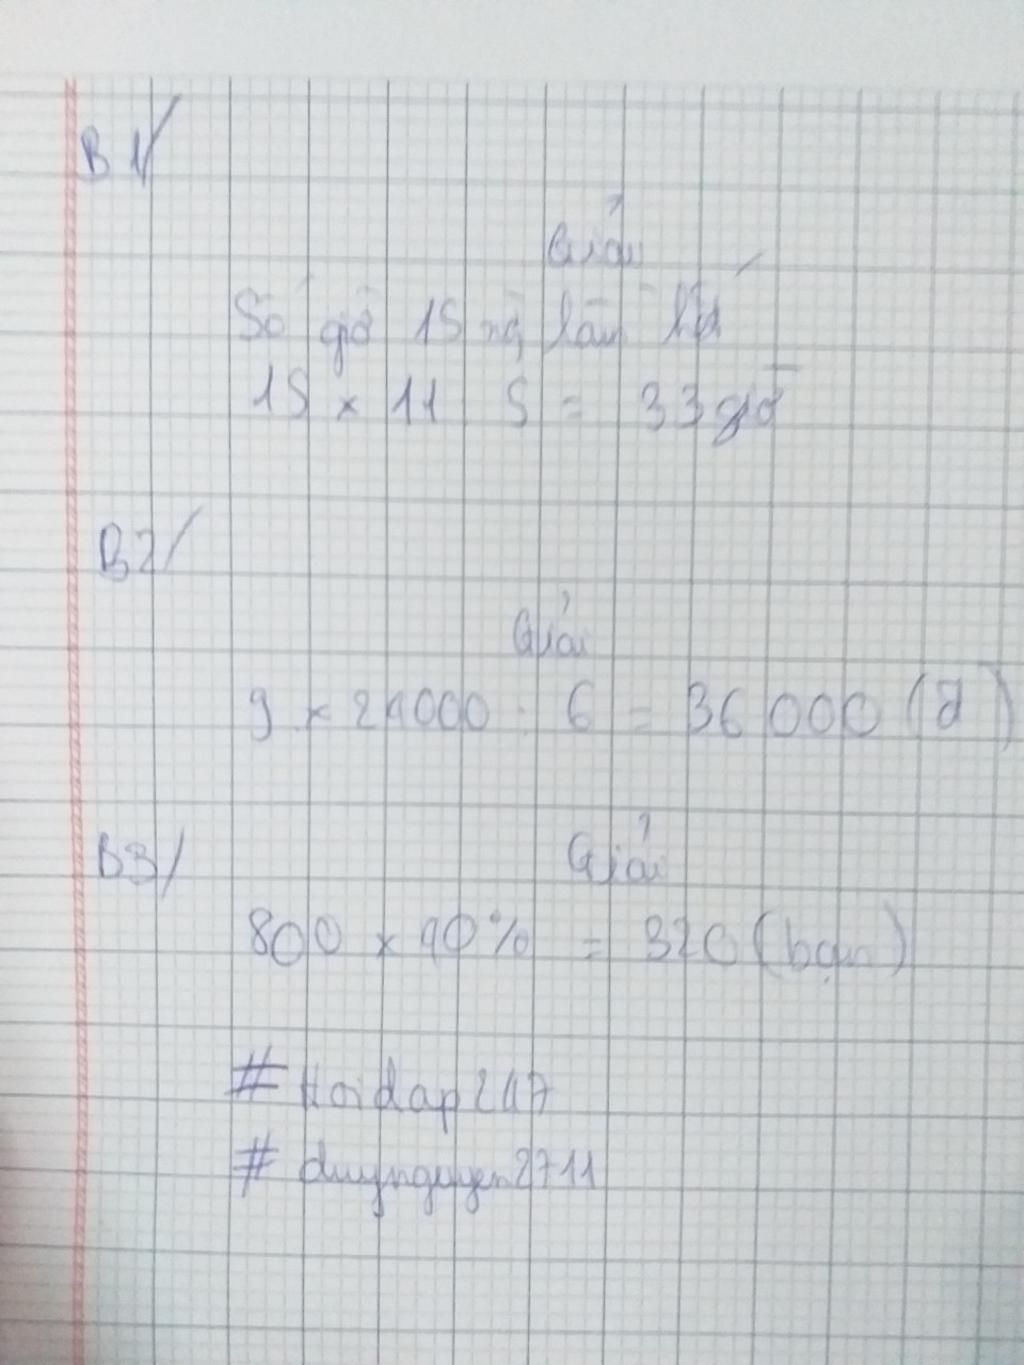 B1/
Giải
Số giờ 15 ng làm là
15 x 11 : 5 = 33 giờ
B2/
Giải
9 x 24000 : 6 = 36 000 (đ)
B3/
Giải
800 x 40% = 320 (bạn)
# Hoidap247
# duynguyen2711